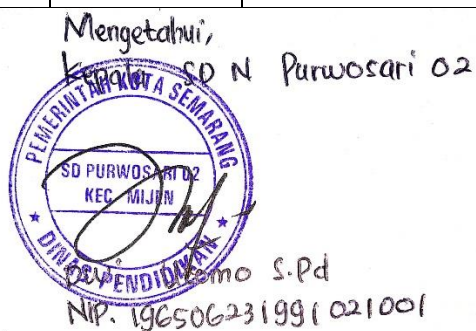 Mengetahui,
Kepala SD N Purwosari 02
PEMERINTAH KOTA SEMARANG
SD PURWOSARI 02
KEC. MIJEN
DINAS PENDIDIKAN
S.Pd
NIP. 196506231991021001